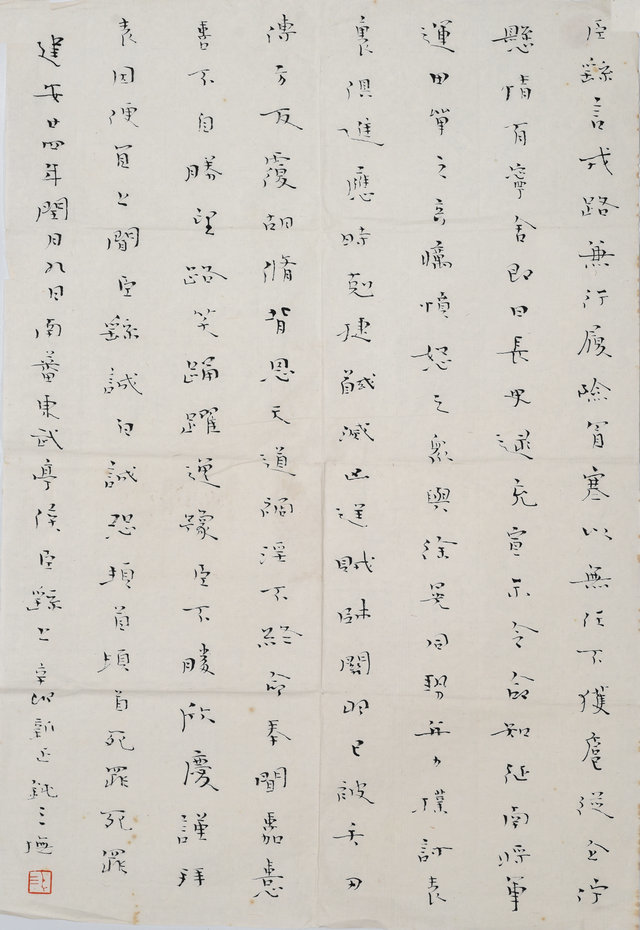 臣繇言戎路兼行履險冒寒以無任不獲扈從企佇
懸情有寧舍即日長史逮充宣示令命知征南將軍
運田單之奇曯憤怒之衆與徐晃同勢并力撲討表
裏俱進應時剋捷馘滅凶逆賊帥關羽已被矢刃
傅方反覆胡脩背恩天道禍淫不終命奉聞嘉憙
喜不自勝望路笑踊躍逸豫臣不勝欣慶謹拜
表因便宜上聞臣繇誠皇誠恐頓首頓首死罪死罪
建安廿四年閏月九日南蕃東武亭侯臣繇上 辛卯新正鈍三橅